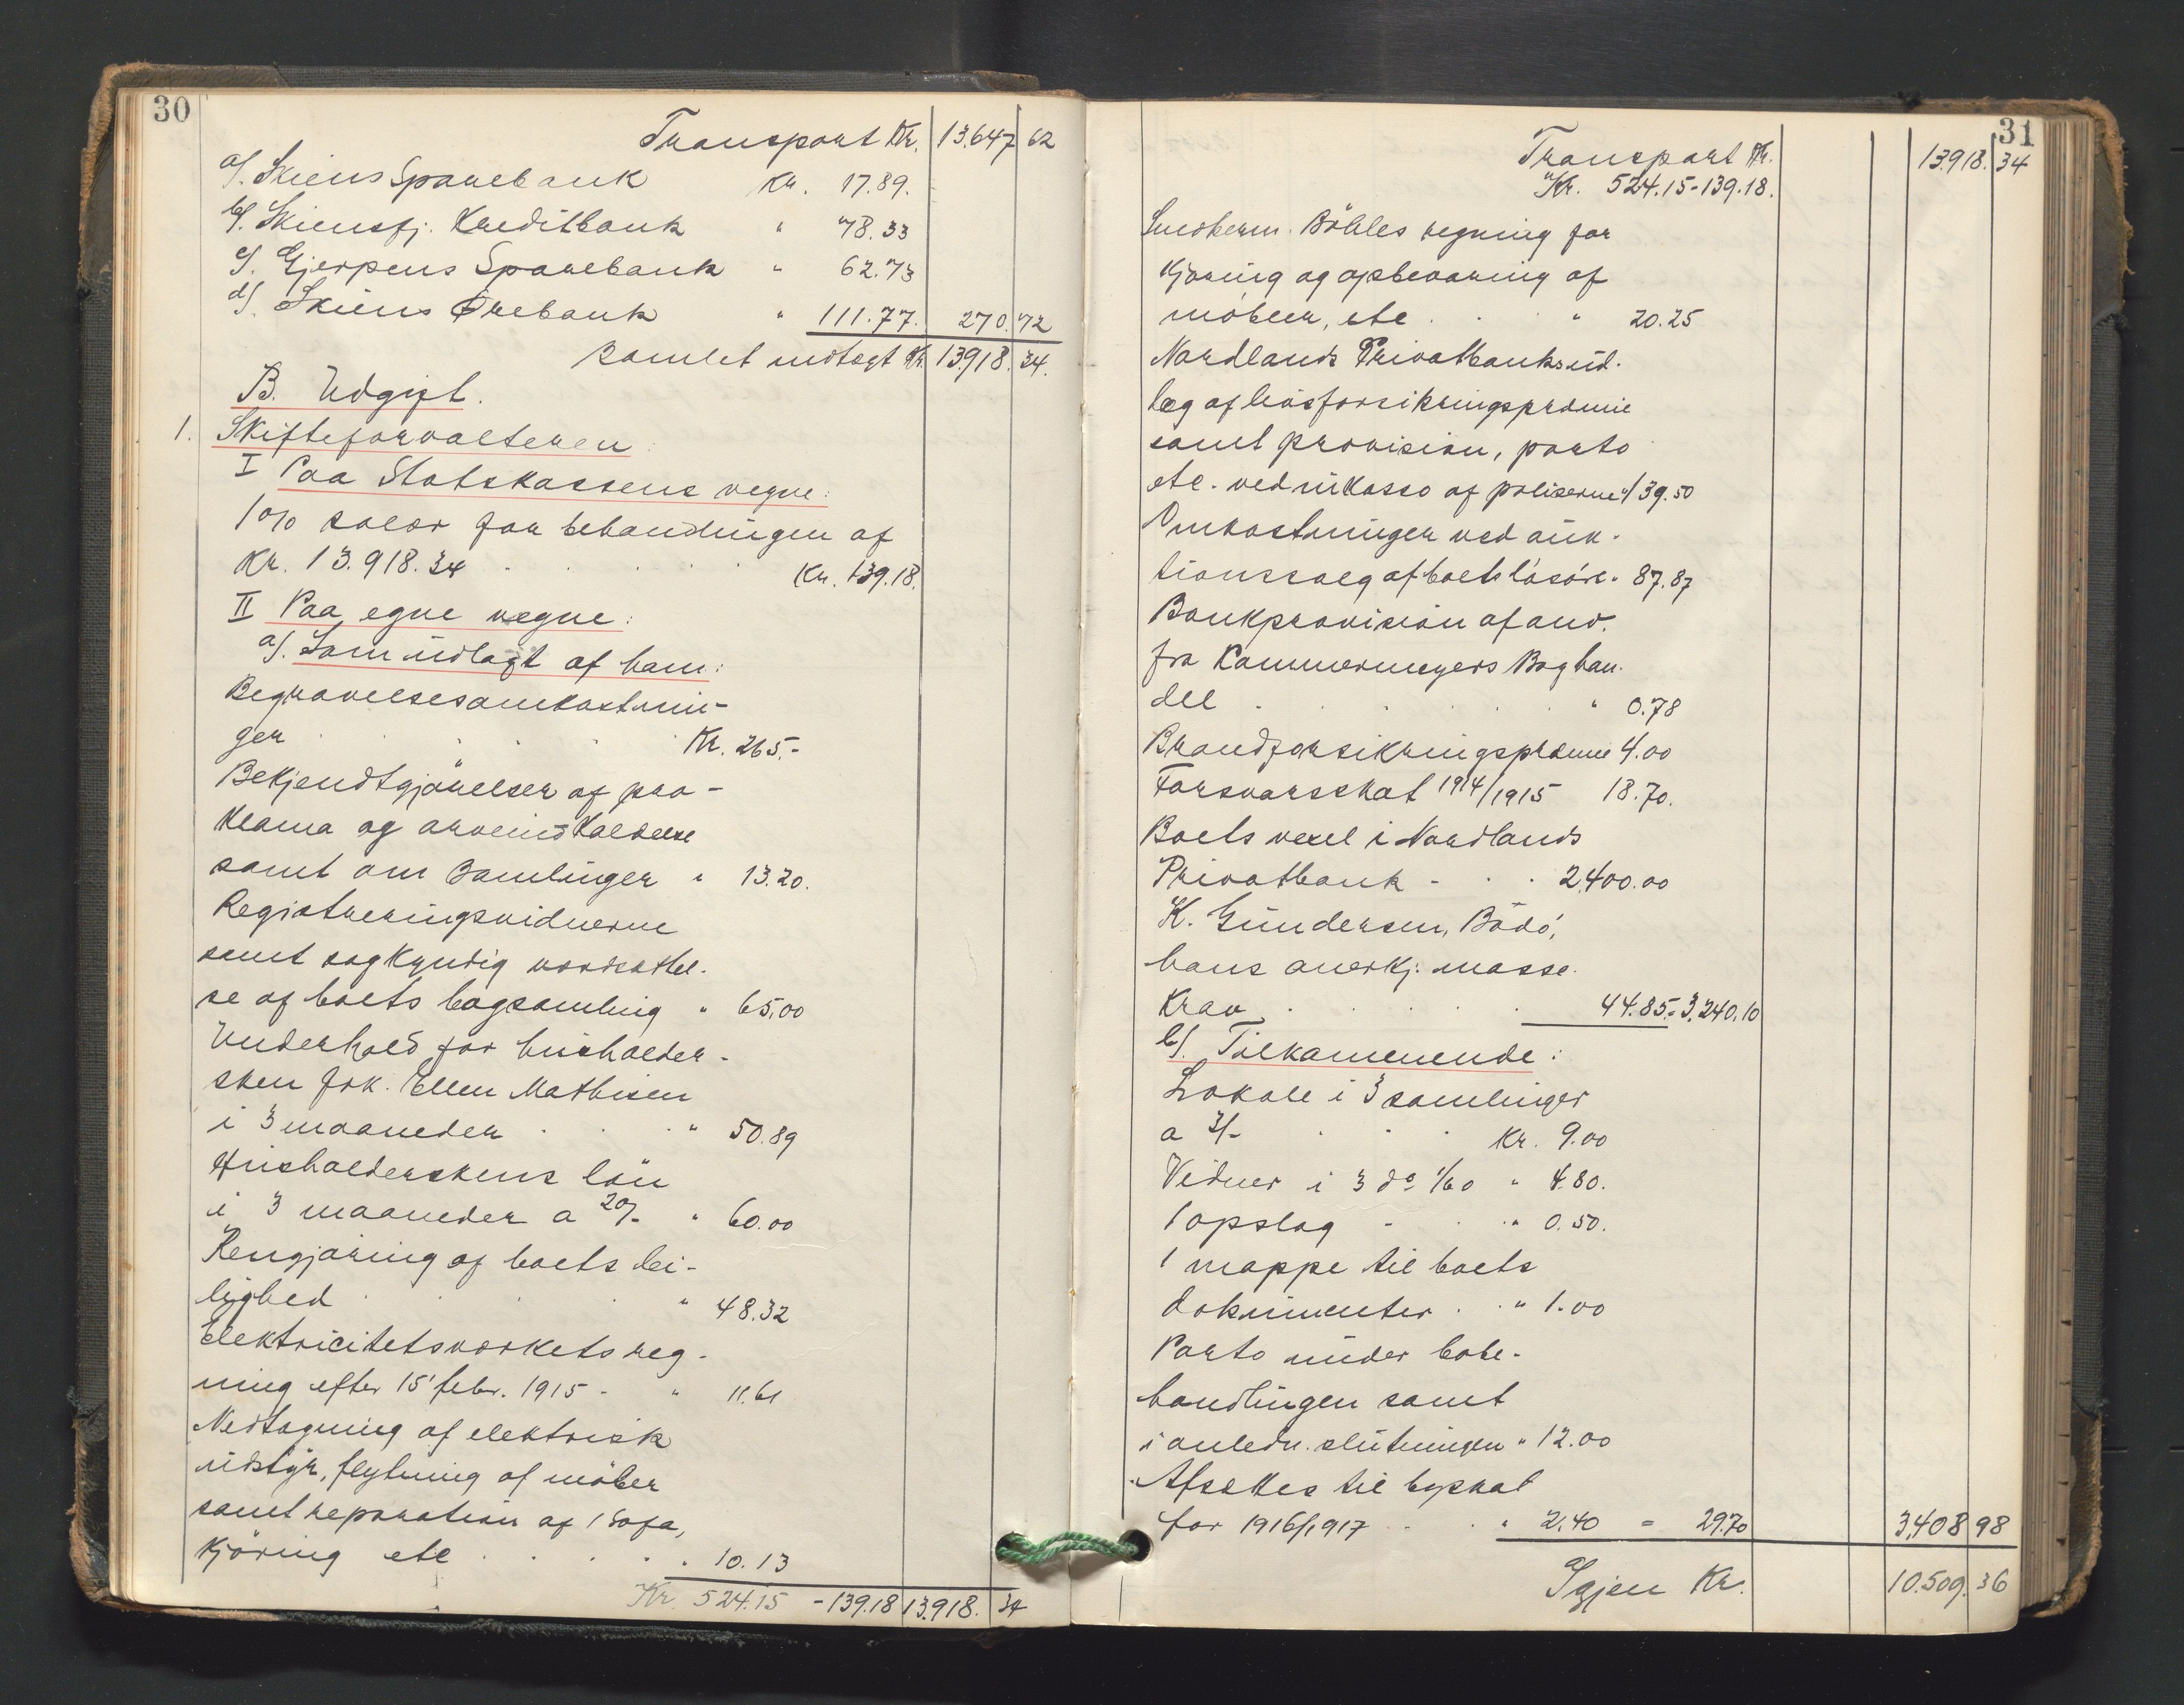 30
Transport Kr. 13.647 62
a/. Skiens Sparebank Kr. 17.89.
b/. Skiensfj. Kreditbank " 78.33
c/. Gjerpens Sparebank " 62.73
d/. Skiens Ørebank " 111.77. 270.72
Samlet indtægt Kr. 13918.34.
B. Udgift.
1. Skifteforvalteren:
I Paa Statskassens vegne:
1% salær for behandlingen af
Kr. 13.918.34 . . . . Kr. 139.18.
II Paa egne vegne:
a/. Som udlagt af ham:
Begravelsesomkostnin-
ger . . . . Kr. 265.-
Bekjendtgjörelser af pro-
klama og arveindkaldelse
samt om Samlinger " 13.20.
Registreringsvidnerne
samt sagkyndig værdsættel-
se af boets bogsamling " 65.00
Underhold for husholder-
sken frk. Ellen Mathisen
i 3 maaneder . . . " 50.89
Husholderskens lön
i 3 maaneder a 20/- " 60.00
Rengjöring af boets lei-
lighed . . . " 48.32
Elektricitetsværkets reg-
ning efter 15' febr. 1915 - " 11.61
Nedtagning af elektrisk
udstyr, flytning af möbler
samt reparation af 1 Sofa,
kjöring etc . . . . " 10.13
Kr. 524.15 - 139.18 13.918. 34
31
Transport Kr. 13.918. 34
Kr. 524.15 - 139.18.
Snedkerm. Böhles regning for
kjöring og opbevaring af
möbler, etc . . " 20.25
Nordlands Privatbanks ud-
læg af livsforsikringspræmie
samt provision, porto
etc. ved inkasso af poliserne " 139.50
Omkostninger ved auk-
tionssalg af boets lösöre " 87.87
Bankprovision af anv.
fra Cammermeyers Boghan-
del . . . . . " 0.78
Brandforsikringspræmie 4.00
Forsvarsskat 1914/1915 18.70.
Boets vexel i Nordlands
Privatbank - . . 2,400.00
K. Gundersen, Bodö,
hans anerkj. masse-
krav . . . . 44.85.= 3,240.10
b/. Tilkommende:
Lokale i 3 samlinger
a 3/- . . . Kr. 9.00
Vidner i 3 do 1/60 " 4.80.
1 opslag - . . " 0.50.
1 mappe til boets
dokumenter . . " 1.00
Porto under bobe-
handlingen samt
i anledn. slutningen " 12.00
Afsættes til byskat
for 1916/1917 . . " 2.40 = 29.70 3,408 98
Igjen Kr. 10.509. 36